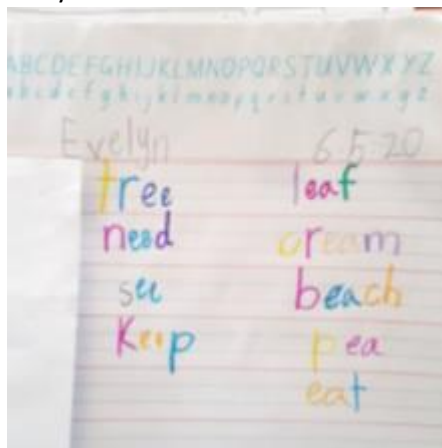 ABCDEFGHIJKLMNOPQRSTUVWXYZ
abcdefghijklmnopqrstuvwxyz
Evelyn 6.5.20
tree leaf
need cream
see beach
Keep pea
eat